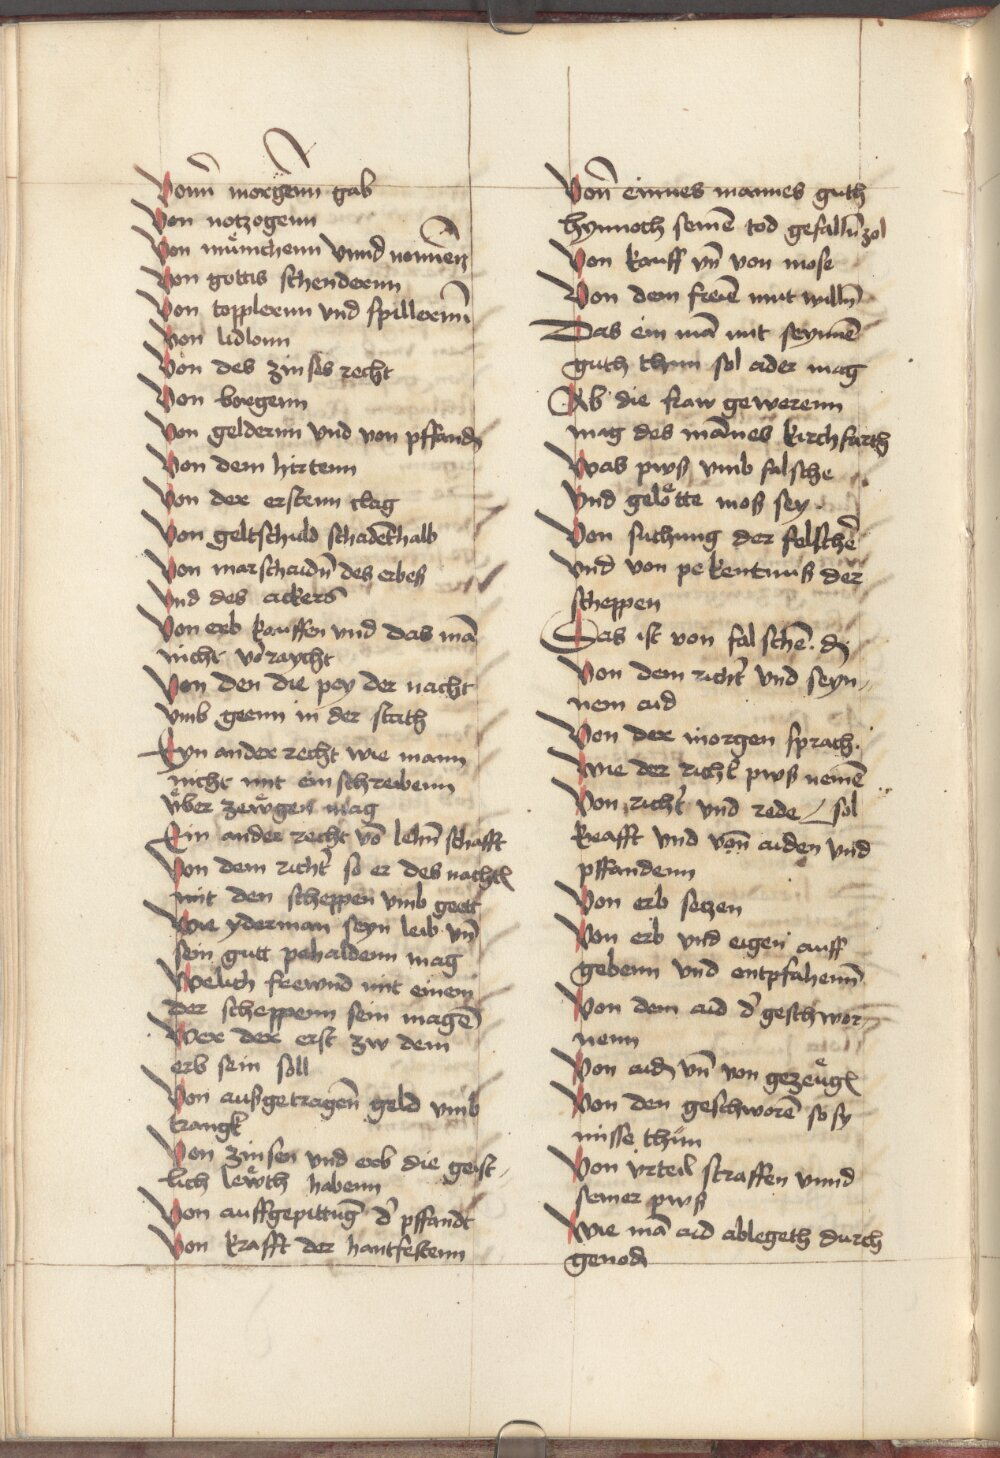 Vonn morgenn gab
Von notzogenn
Von mu̇nchenn vnnd nonnen
Von gottis schendernn
Von topplernn vnd spillernn
Von lidlonn
Von des zinses recht
Von borgenn
Von geldernn vnd von pffand
Von dem hirtenn
Von der erstenn clag
Von geltschuld schadēhalb
Von marschaidn̄ des erbeß
vnd des ackers
Von erb kauffen vnd das mā
nicht vo᷑raycht
Von den die pey der nacht
vmb geenn in der stath
Eyn ander recht wie mann
nicht mit ein schreibenn
vͤber zewͤgen mag
Ein ander recht vō lehn̄ schafft
Von dem richt᷑ so er des nachtꝭ
mit den scheppen vmb geett
Wie yderman seyn leib vn̄
sein gutt pehaldenn mag
Welich frewnd mit einem
der scheppenn sein magē
Wer der erst zw dem
erb sein soll
Von außgetragen̄ geld vmb
trangk
Von zinsen vnd erb die geist-
lich lewͤth habenn
Von auffgepittūg d᷑ pffandt
Von krafft der hantfestenn
Von̄ einnes mannes guth
hynnoch seinē tod gefalln̄ sol
Von kauff vn̄ von mose
Von dem freiē mut willn̄
Das ein mā mit seynnē
guth thun sol ader mag
Ab die fraw gewerenn
mag des mānnes kirchfarth
Was pwß vmb falsche
vnd geloͤtte moß sey.
Von suchung der felschē
vnd von pekentnuß der
scheppen
Das ist von falschē. d
Von dem richt᷑ vnd seyn-
nem aid
Von der morgen sprach.
Wie der richt᷑ pwß nemē
Von richt᷑ vnd rede sol
krafft vnd von̄ aiden vnd
pffandenn
Von erb setzen
Von erb vnd eigen auff
gebenn vnd entpfahenn̄
Von dem aid d᷑ geschwor-
nenn
Von aid vn̄ von gezeuͤgꝭ
Von den geschworē so sy
misse thun
Von vrteil straffen vnnd
seiner pwß
Wie mā aid ablegeth durch
genod